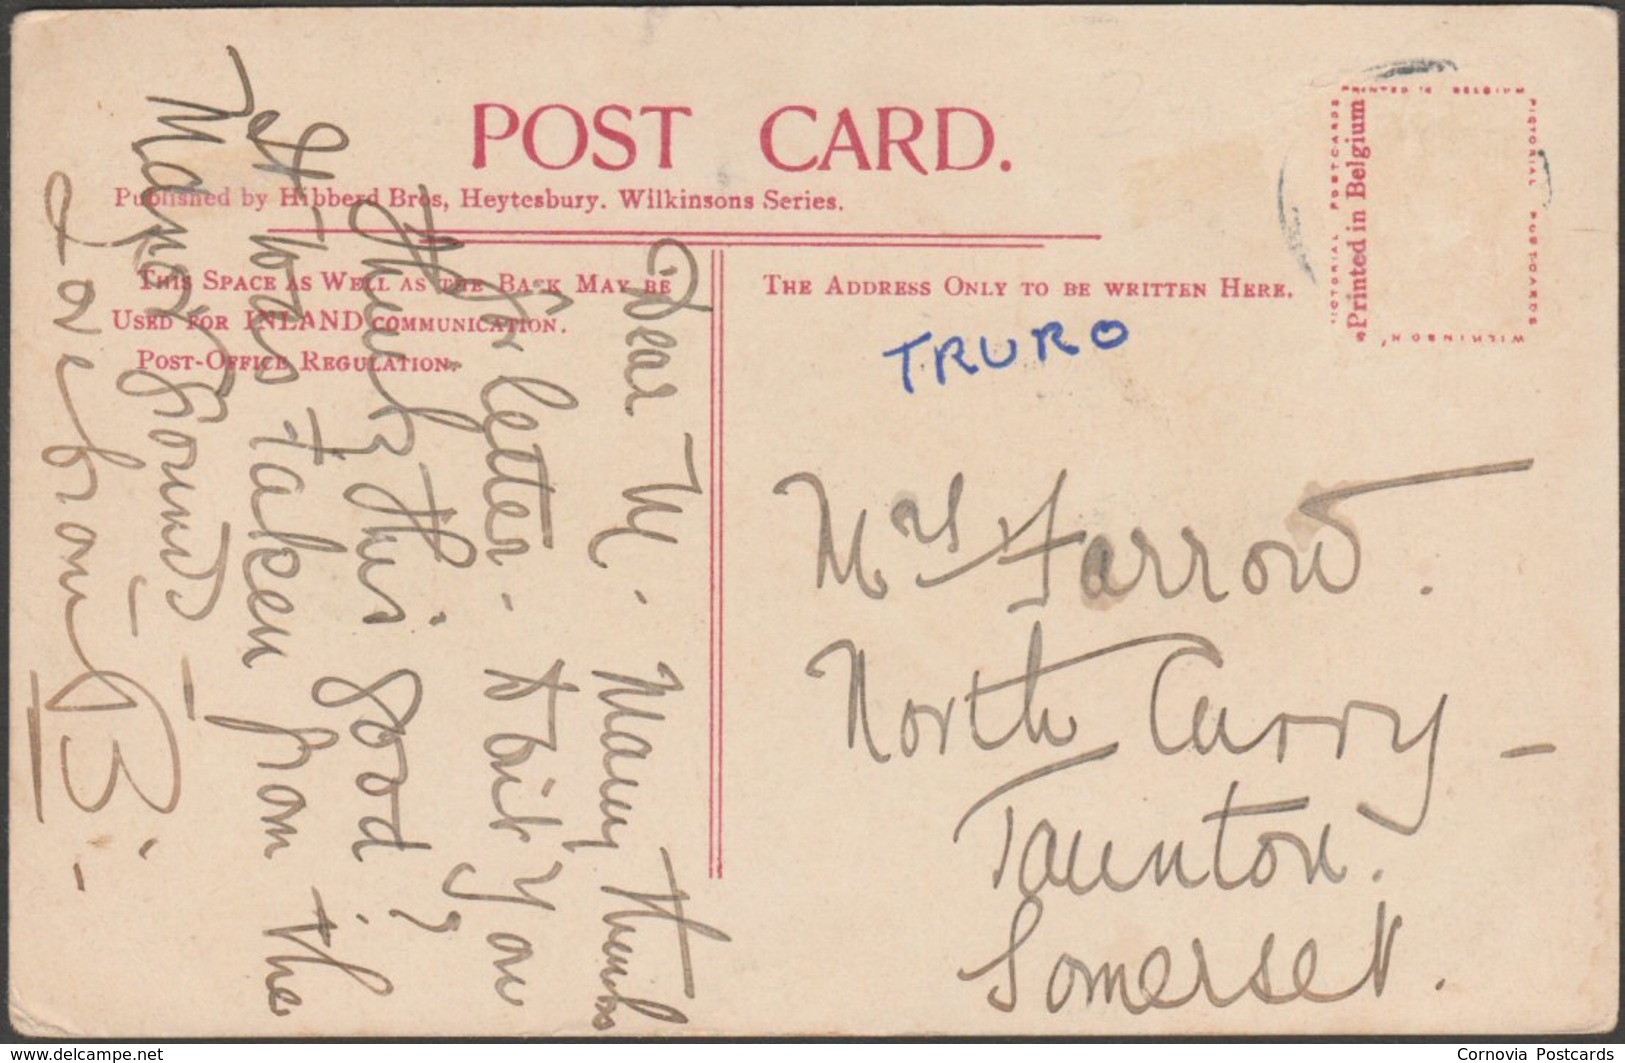 POST CARD.
Published by Hibberd Bros, Heytesbury. Wilkinsons Series.
This Space as Well as the Back May be
Used for INLAND communication.
Post-Office Regulation.
The Address Only to be written Here.
PRINTED IN BELGIUM
PICTORIAL POSTCARDS
PICTORIAL POSTCARDS
WILKINSON'
Printed in Belgium
TRURO
Mrs Farrow.
North Curry -
Taunton.
Somerset.
Dear M. Many thanks
for letter. - Don't you
think this good?
It was taken from the
Mayor's grounds -
Love from B. -
www.delcampe.net
Cornovia Postcards